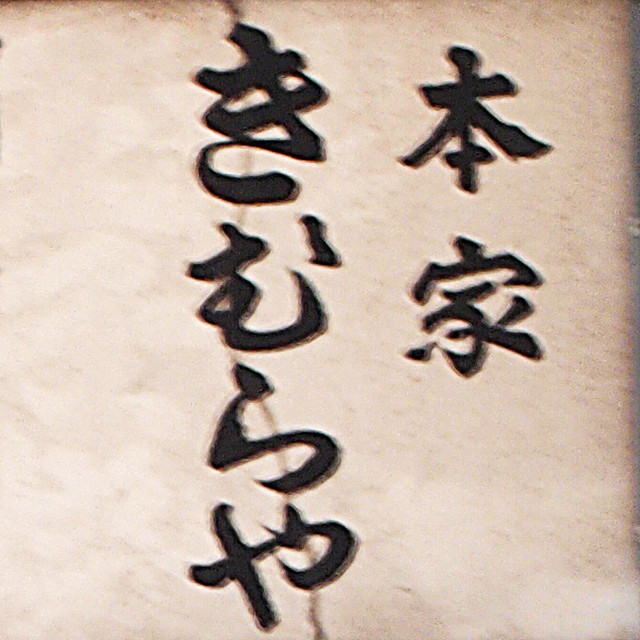 本家
きむらや